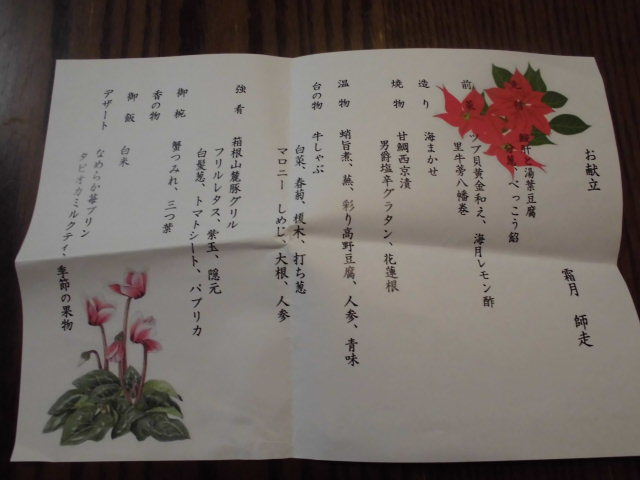 お献立
霜月　師走
先附　鮟肝と湯葉豆腐
分葱、べっこう餡
前菜　ツブ貝黄金和え、海月レモン酢
里牛蒡八幡巻
造り　海まかせ
焼物　甘鯛西京漬
男爵塩辛グラタン、花蓮根
温物　蛸旨煮、蕪、彩り高野豆腐、人参、青味
台の物　牛しゃぶ
白菜、春菊、榎木、打ち葱
マロニー　しめじ、大根、人参
強肴　箱根山麓豚グリル
フリルレタス、紫玉、隠元
白髪葱、トマトシート、パプリカ
御椀　蟹つみれ、三つ葉
香の物
御飯　白米
デザート　なめらか苺プリン
タピオカミルクティ、季節の果物